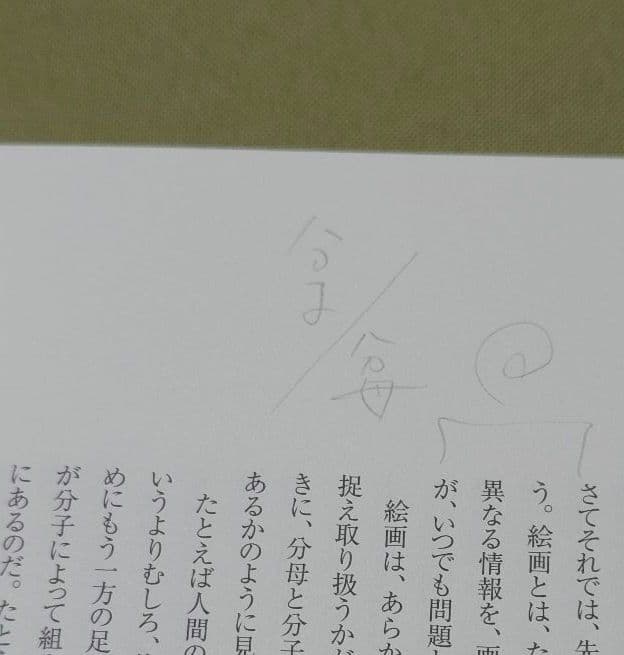 分子/分母
さてそれでは、先
う。絵画とは、た
異なる情報を、画
が、いつでも問題と
絵画は、あらか
捉え取り扱うかが
きに、分母と分子
あるかのように見
たとえば人間の
いうよりむしろ、
めにもう一方の足
が分子によって組
にあるのだ。たと